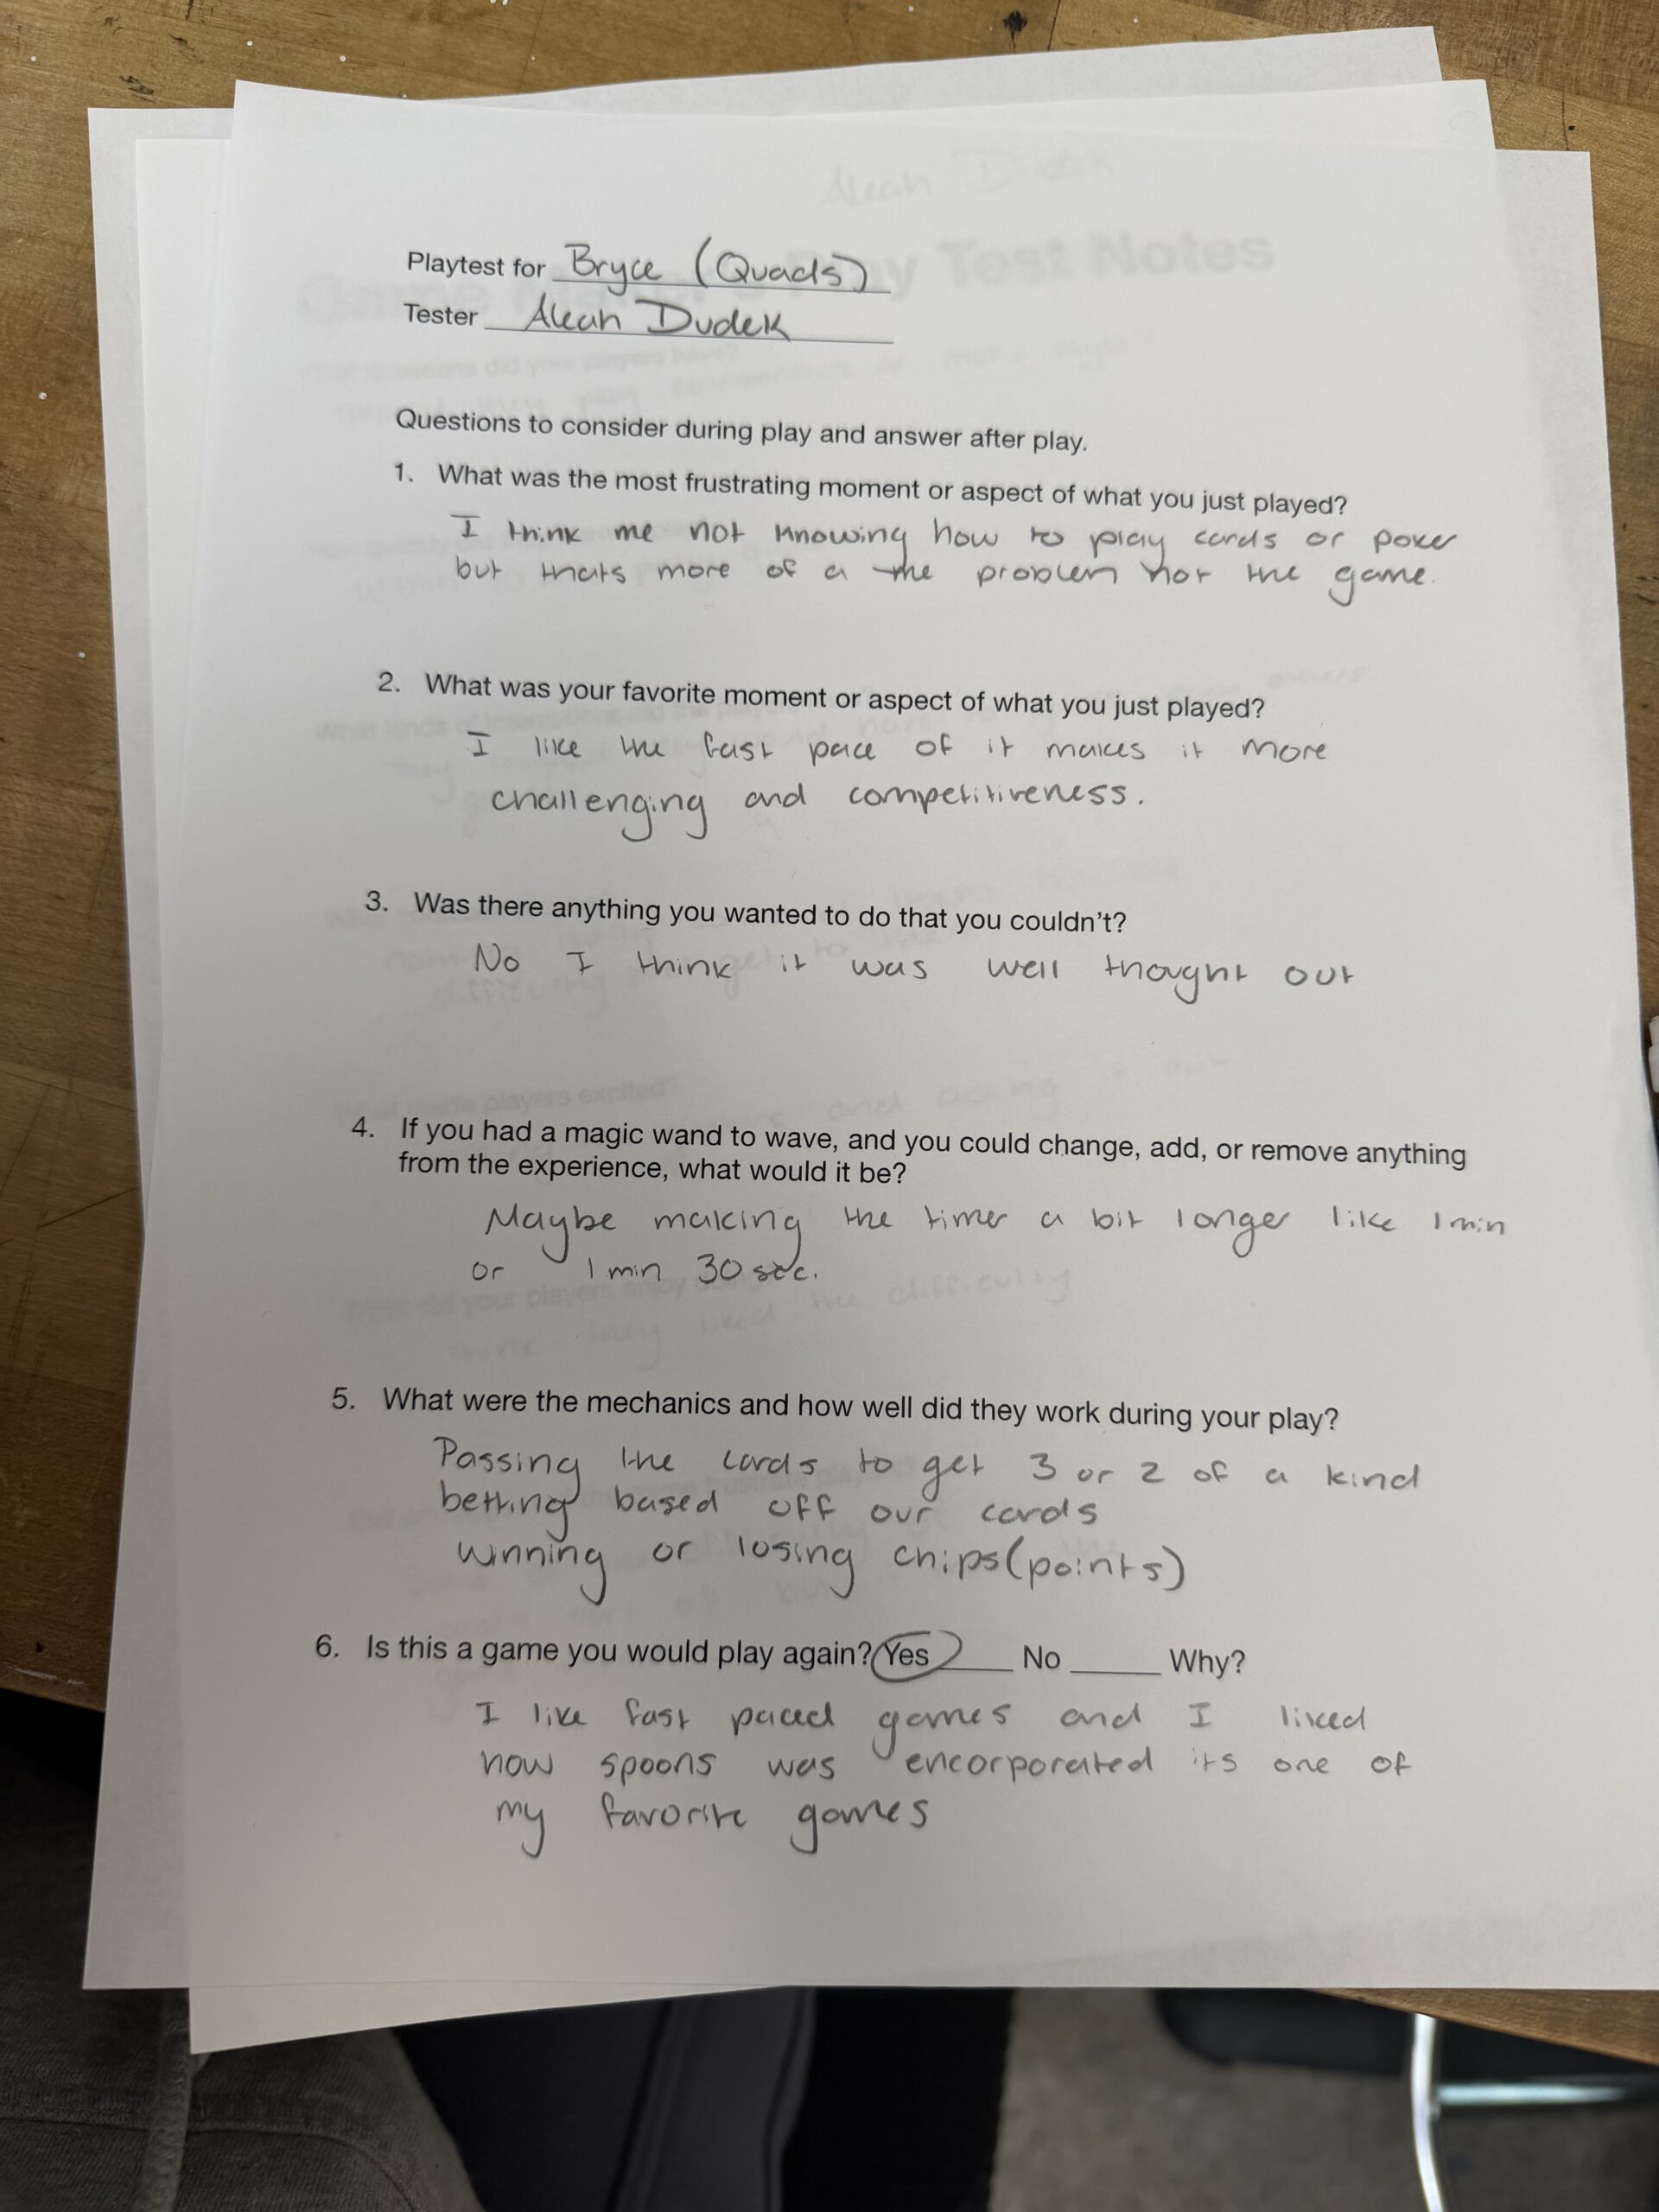 Playtest for Bryce (Quads)
Tester Aleah Dudek
Questions to consider during play and answer after play.
1. What was the most frustrating moment or aspect of what you just played?
I think me not knowing how to play cards or poker
but thats more of a me problem not the game.
2. What was your favorite moment or aspect of what you just played?
I like the fast pace of it makes it more
challenging and competitiveness.
3. Was there anything you wanted to do that you couldn't?
No I think it was well thought out
4. If you had a magic wand to wave, and you could change, add, or remove anything
from the experience, what would it be?
Maybe making the timer a bit longer like 1 min
or 1 min 30 sec.
5. What were the mechanics and how well did they work during your play?
Passing the cards to get 3 or 2 of a kind
betting based off our cards
winning or losing chips (points)
6. Is this a game you would play again? Yes ____ No ____ Why?
I like fast paced games and I liked
how spoons was encorporated its one of
my favorite games